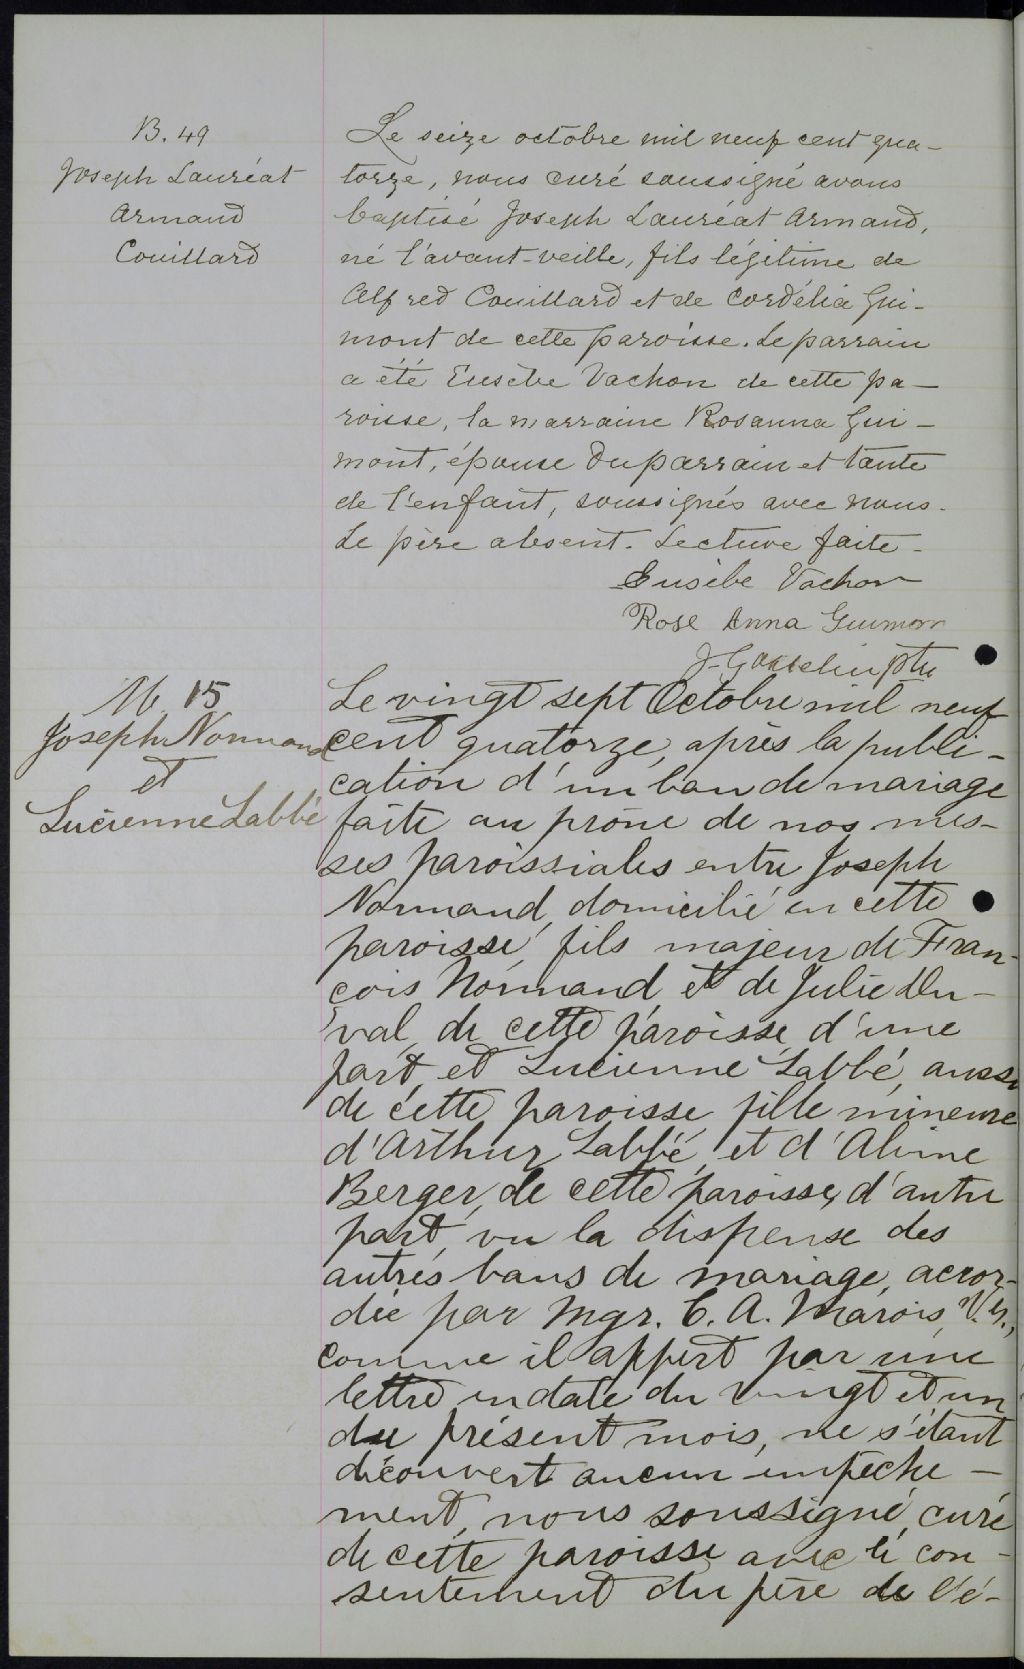 B. 49
Joseph Lauréat
Armand
Couillard
Le seize octobre mil neuf cent qua-
torze, nous curé soussigné avons
baptisé Joseph Lauréat Armand,
né l'avant-veille, fils légitime de
Alfred Couillard et de Cordélia Gui-
mont de cette paroisse. Le parrain
a été Eusèbe Vachon de cette pa-
roisse, la marraine Rosanna Gui-
mont, épouse du parrain et tante
de l'enfant, soussignés avec nous.
Le père absent. Lecture faite.
Eusèbe Vachon
Rose Anna Guimon
J. Gosselin ptre
M 15
Joseph Normand
et
Lucienne Labbé
Le vingt sept Octobre mil neuf
cent quatorze, après la publi-
cation d'un ban de mariage
faite au prône de nos mes-
ses paroissiales entre Joseph
Normand, domicilié en cette
paroisse, fils majeur de Fran-
çois Normand et de Julie Du-
val, de cette paroisse, d'une
part, et Lucienne Labbé, aussi
de cette paroisse, fille mineure
d'Arthur Labbé, et d'Alvine
Berger, de cette paroisse, d'autre
part, vu la dispense des
autres bans de mariage, accor-
dée par Mgr. C. A. Marois, V. G.,
comme il appert par une
lettre en date du vingt et un
du présent mois, ne s'étant
découvert aucun empêche-
ment, nous soussigné, curé
de cette paroisse avec le con-
sentement du père de l'é-